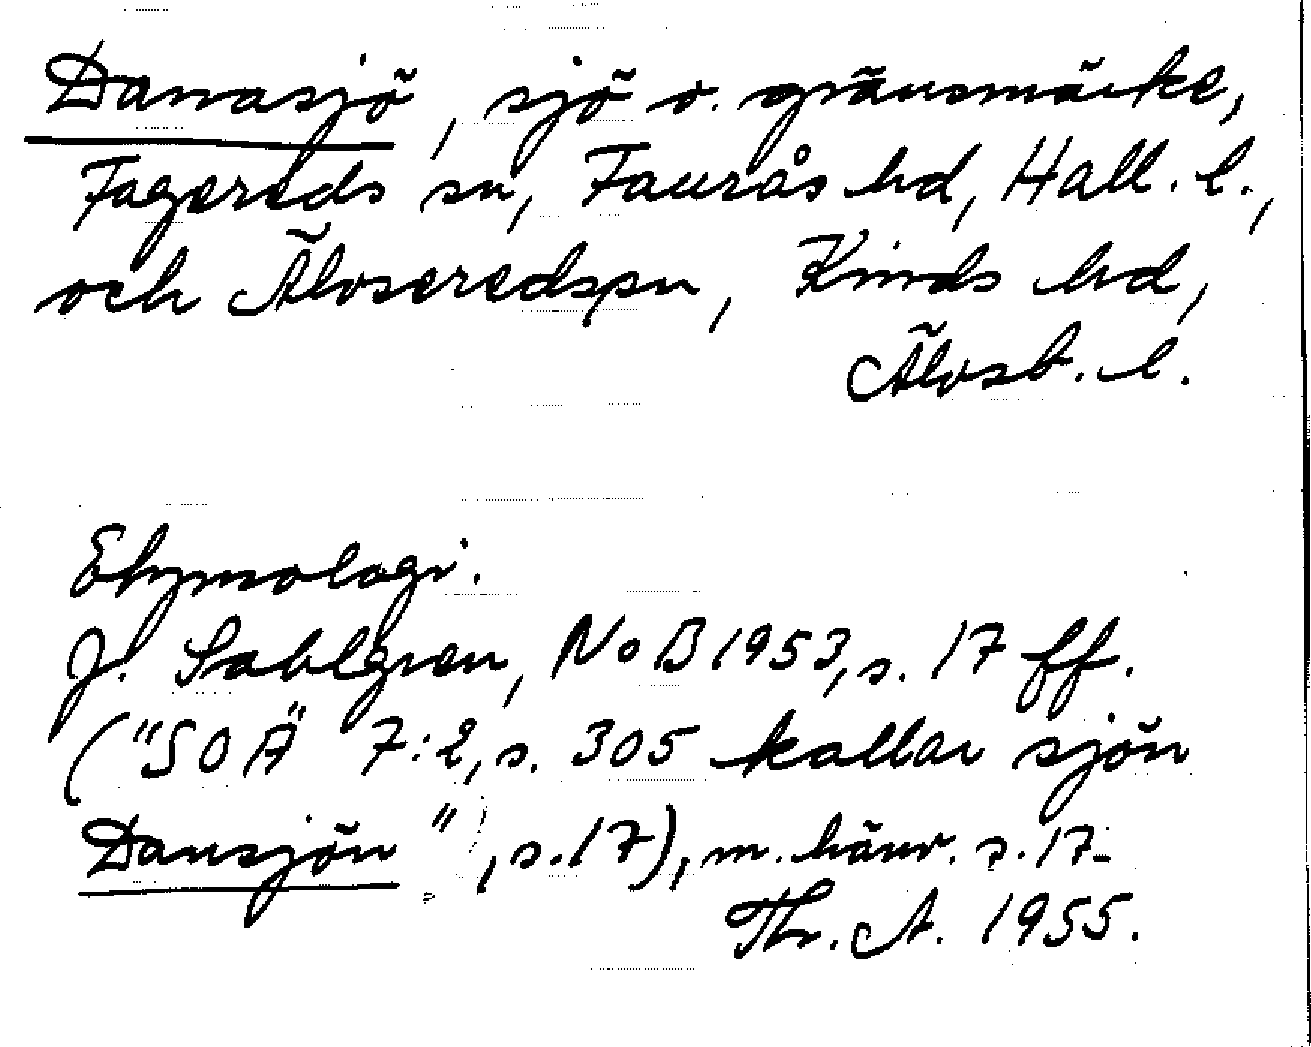 Danasjö, sjö o. gränsmärke,
Fagereds sn, Faurås hd, Hall. l.,
och Älvseredssn, Kinds hd,
Älvsb. l.
Etymologi.
J. Sahlgren, NoB 1953, s. 17 ff.
("SOÄ" 7:2, s. 305 kallar sjön
Dansjön", s. 17), m. hänv. s. 17.
Thr. A. 1955.